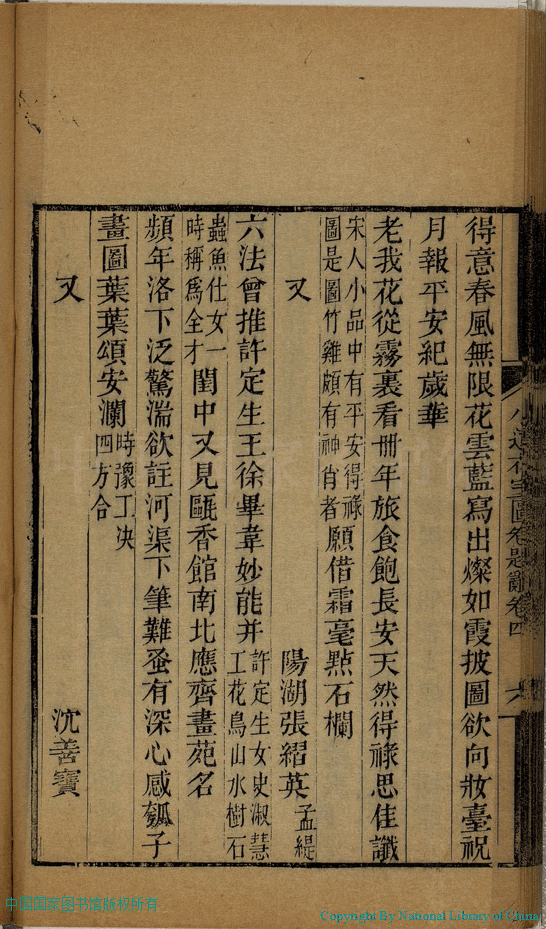 得意春風無限花雲藍寫出燦如霞披圖欲向妝臺祝
月報平安紀歲華
老我花從霧裏看卌年旅食飽長安天然得祿思佳讖
宋人小品中有平安得祿圖是圖竹雞頗有神肖者願借霜毫點石欄
又 陽湖張䌌英孟緹
六法曾推許定生王徐畢韋妙能并許定生女史淑慧工花鳥山水樹石
蟲魚仕女一時稱爲全才閨中又見甌香館南北應齊畫苑名
頻年洛下泛驚湍欲註河渠下筆難蚤有深心感瓠子
畫圖葉葉頌安瀾時豫工决四方合
又 沈善寶
圖卷題辭卷四 六
中国国家图书馆版权所有
Copyright By National Library of China